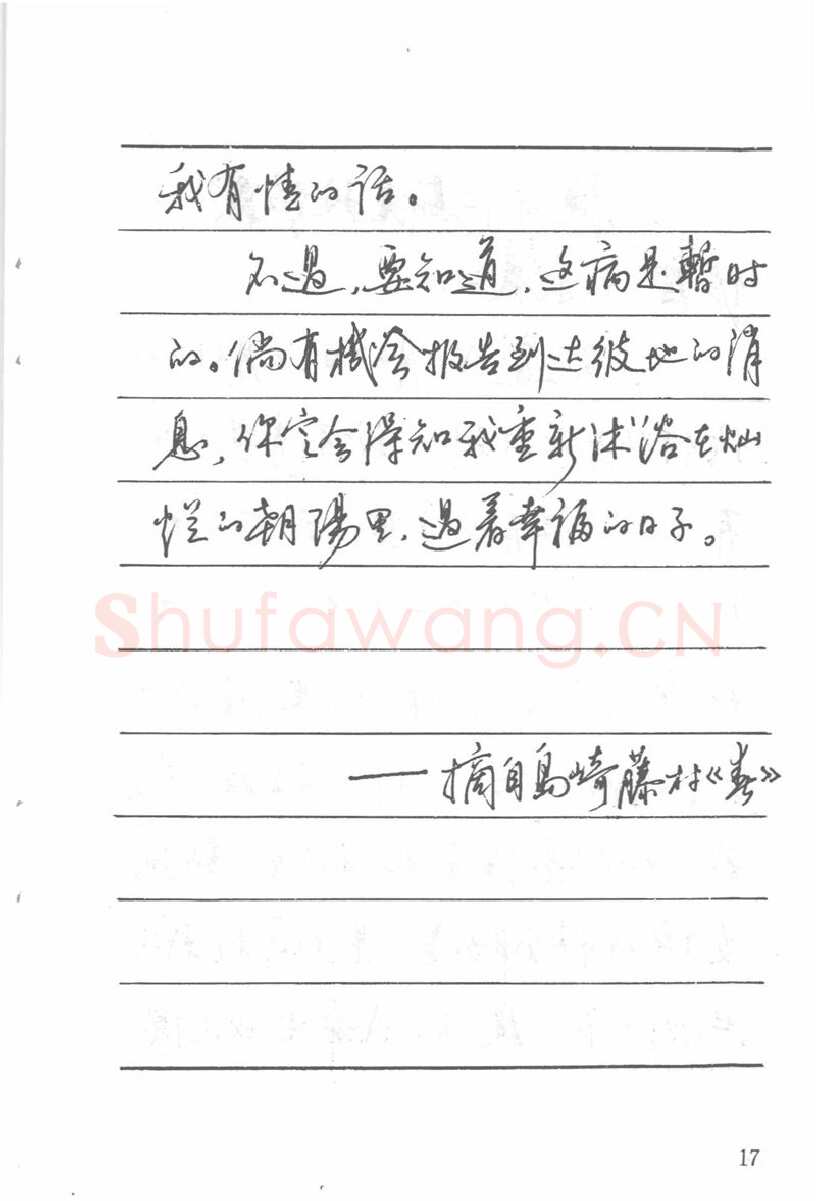 我有情的话。
不過，要知道，这病是暫时
的。倘有机会报告到达彼地的消
息，你定会得知我重新沐浴在灿
烂的朝陽里，過着幸福的日子。
Shufawang.CN
——摘自島崎藤村《春》
17